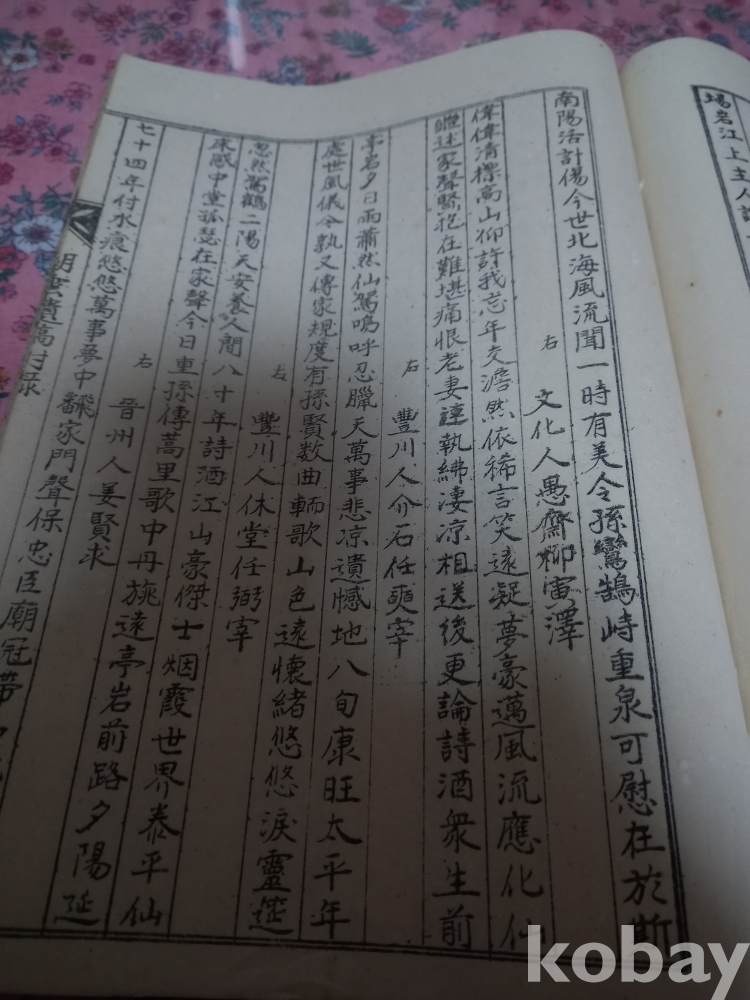 場岩江上主人
南陽活計傷今世北海風流聞一時有美令孫鸞鵠峙重泉可慰在於斯
右 文化人愚齋柳寅澤
偉偉清標高山仰許我忘年交澹然依稀言笑遠凝夢豪邁風流應化仙
繼述家聲賢孫在難堪痛恨老妻蓮執紼凄凉相送後更論詩酒衆生前
右 豐川人介石任奭宰
亭岩夕日雨蕭然仙駕嗚呼忍臘天萬事悲凉遺憾地八旬康旺太平年
處世風儀今孰又傳家規度有孫賢数曲輀歌山色遠懷緒悠悠淚靈筵
右 豐川人休堂任弼宰
忽然駕鶴二陽天安養人間八十年詩酒江山豪傑士烟霞世界泰平仙
床感中堂孤瑟在家聲今日重孫傳蒿里歌中丹旐遠亭岩前路夕陽延
右 晉州人姜賢求
七十四年付水痕悠悠萬事夢中飜家門聲保忠臣廟冠帶
遺稿付錄
kobay